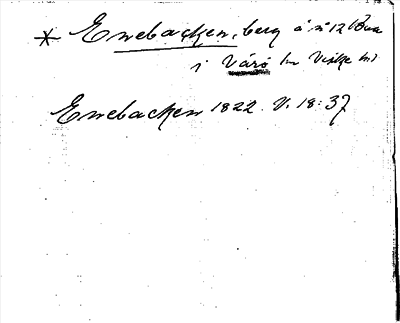 * Enebacken, berg å n:o 12 Bua
i Värö sn Viske hd
Enebacken 1822. V. 18:37